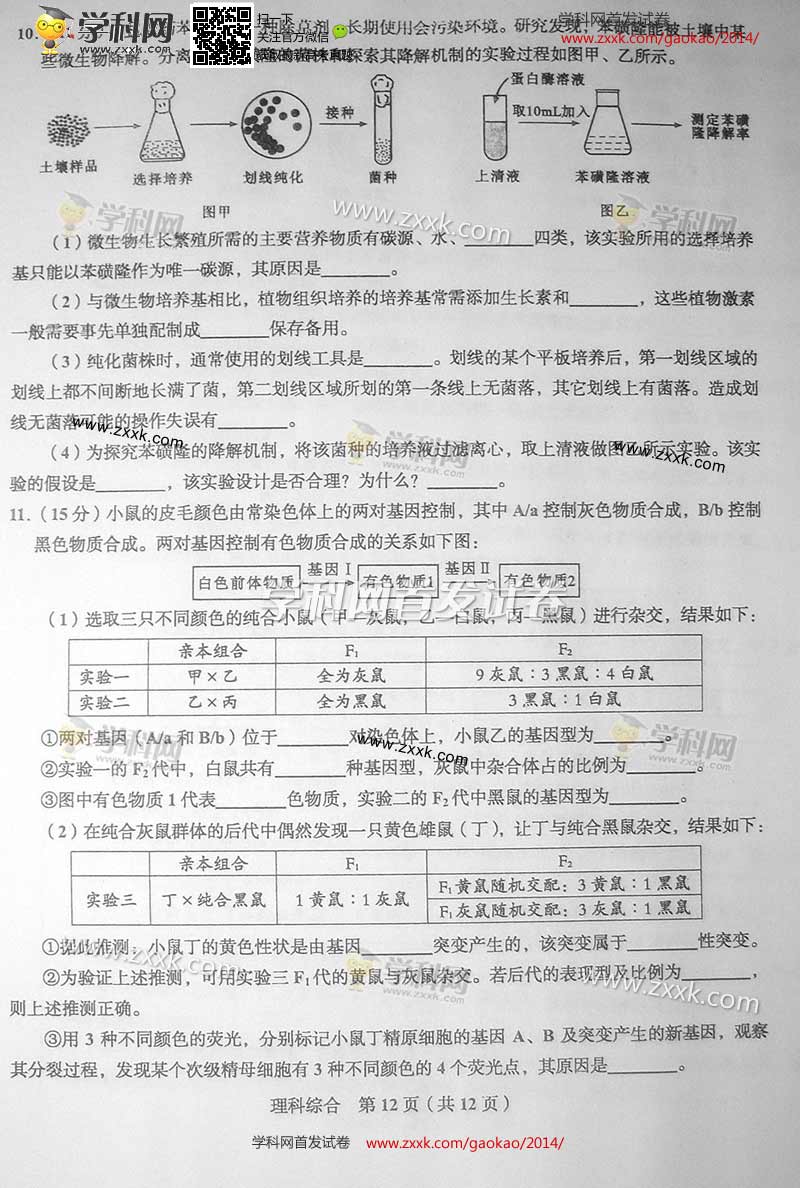 学科网首发试卷
www.zxxk.com/gaokao/2014/
学科网
扫一下
关注官方微信
10.
长期使用会污染环境。研究发现，苯磺隆能被土壤中某
些微生物降解。分离
探索其降解机制的实验过程如图甲、乙所示。
蛋白酶溶液
接种
取10mL加入
测定苯磺
隆降解率
土壤样品
选择培养
划线纯化
菌种
上清液
苯磺隆溶液
图甲
图乙
学科网
www.zxxk.com
（1）微生物生长繁殖所需的主要营养物质有碳源、水、________四类，该实验所用的选择培养
基只能以苯磺隆作为唯一碳源，其原因是________。
（2）与微生物培养基相比，植物组织培养的培养基常需添加生长素和________，这些植物激素
一般需要事先单独配制成________保存备用。
（3）纯化菌株时，通常使用的划线工具是________。划线的某个平板培养后，第一划线区域的
划线上都不间断地长满了菌，第二划线区域所划的第一条线上无菌落，其它划线上有菌落。造成划
线无菌落可能的操作失误有________。
www.zxxk.com
学科网
（4）为探究苯磺隆的降解机制，将该菌种的培养液过滤离心，取上清液做图乙所示实验。该实
www.zxxk.com
验的假设是________，该实验设计是否合理？为什么？________。
11.（15分）小鼠的皮毛颜色由常染色体上的两对基因控制，其中 A/a 控制灰色物质合成，B/b 控制
黑色物质合成。两对基因控制有色物质合成的关系如下图：
白色前体物质 基因Ⅰ 有色物质1 基因Ⅱ 有色物质2
学科网首发试卷
（1）选取三只不同颜色的纯合小鼠（甲—灰鼠，乙—白鼠，丙—黑鼠）进行杂交，结果如下：
亲本组合 F₁ F₂
实验一 甲×乙 全为灰鼠 9灰鼠：3黑鼠：4白鼠
实验二 乙×丙 全为黑鼠 3黑鼠：1白鼠
学科网
①两对基因（A/a 和 B/b）位于________对染色体上，小鼠乙的基因型为________。
www.zxxk.com
②实验一的 F₂代中，白鼠共有________种基因型，灰鼠中杂合体占的比例为________。
③图中有色物质 1 代表________色物质，实验二的 F₂代中黑鼠的基因型为________。
（2）在纯合灰鼠群体的后代中偶然发现一只黄色雄鼠（丁），让丁与纯合黑鼠杂交，结果如下：
亲本组合 F₁ F₂
实验三 丁×纯合黑鼠 1黄鼠：1灰鼠 F₁黄鼠随机交配：3黄鼠：1黑鼠
F₁灰鼠随机交配：3灰鼠：1黑鼠
①据此推测：小鼠丁的黄色性状是由基因________突变产生的，该突变属于________性突变。
www.zxxk.com
学科网
②为验证上述推测，可用实验三 F₁代的黄鼠与灰鼠杂交。若后代的表现型及比例为________，
www.zxxk.com
则上述推测正确。
③用 3 种不同颜色的荧光，分别标记小鼠丁精原细胞的基因 A、B 及突变产生的新基因，观察
其分裂过程，发现某个次级精母细胞有 3 种不同颜色的 4 个荧光点，其原因是________。
理科综合 第 12 页（共 12 页）
学科网首发试卷
www.zxxk.com/gaokao/2014/